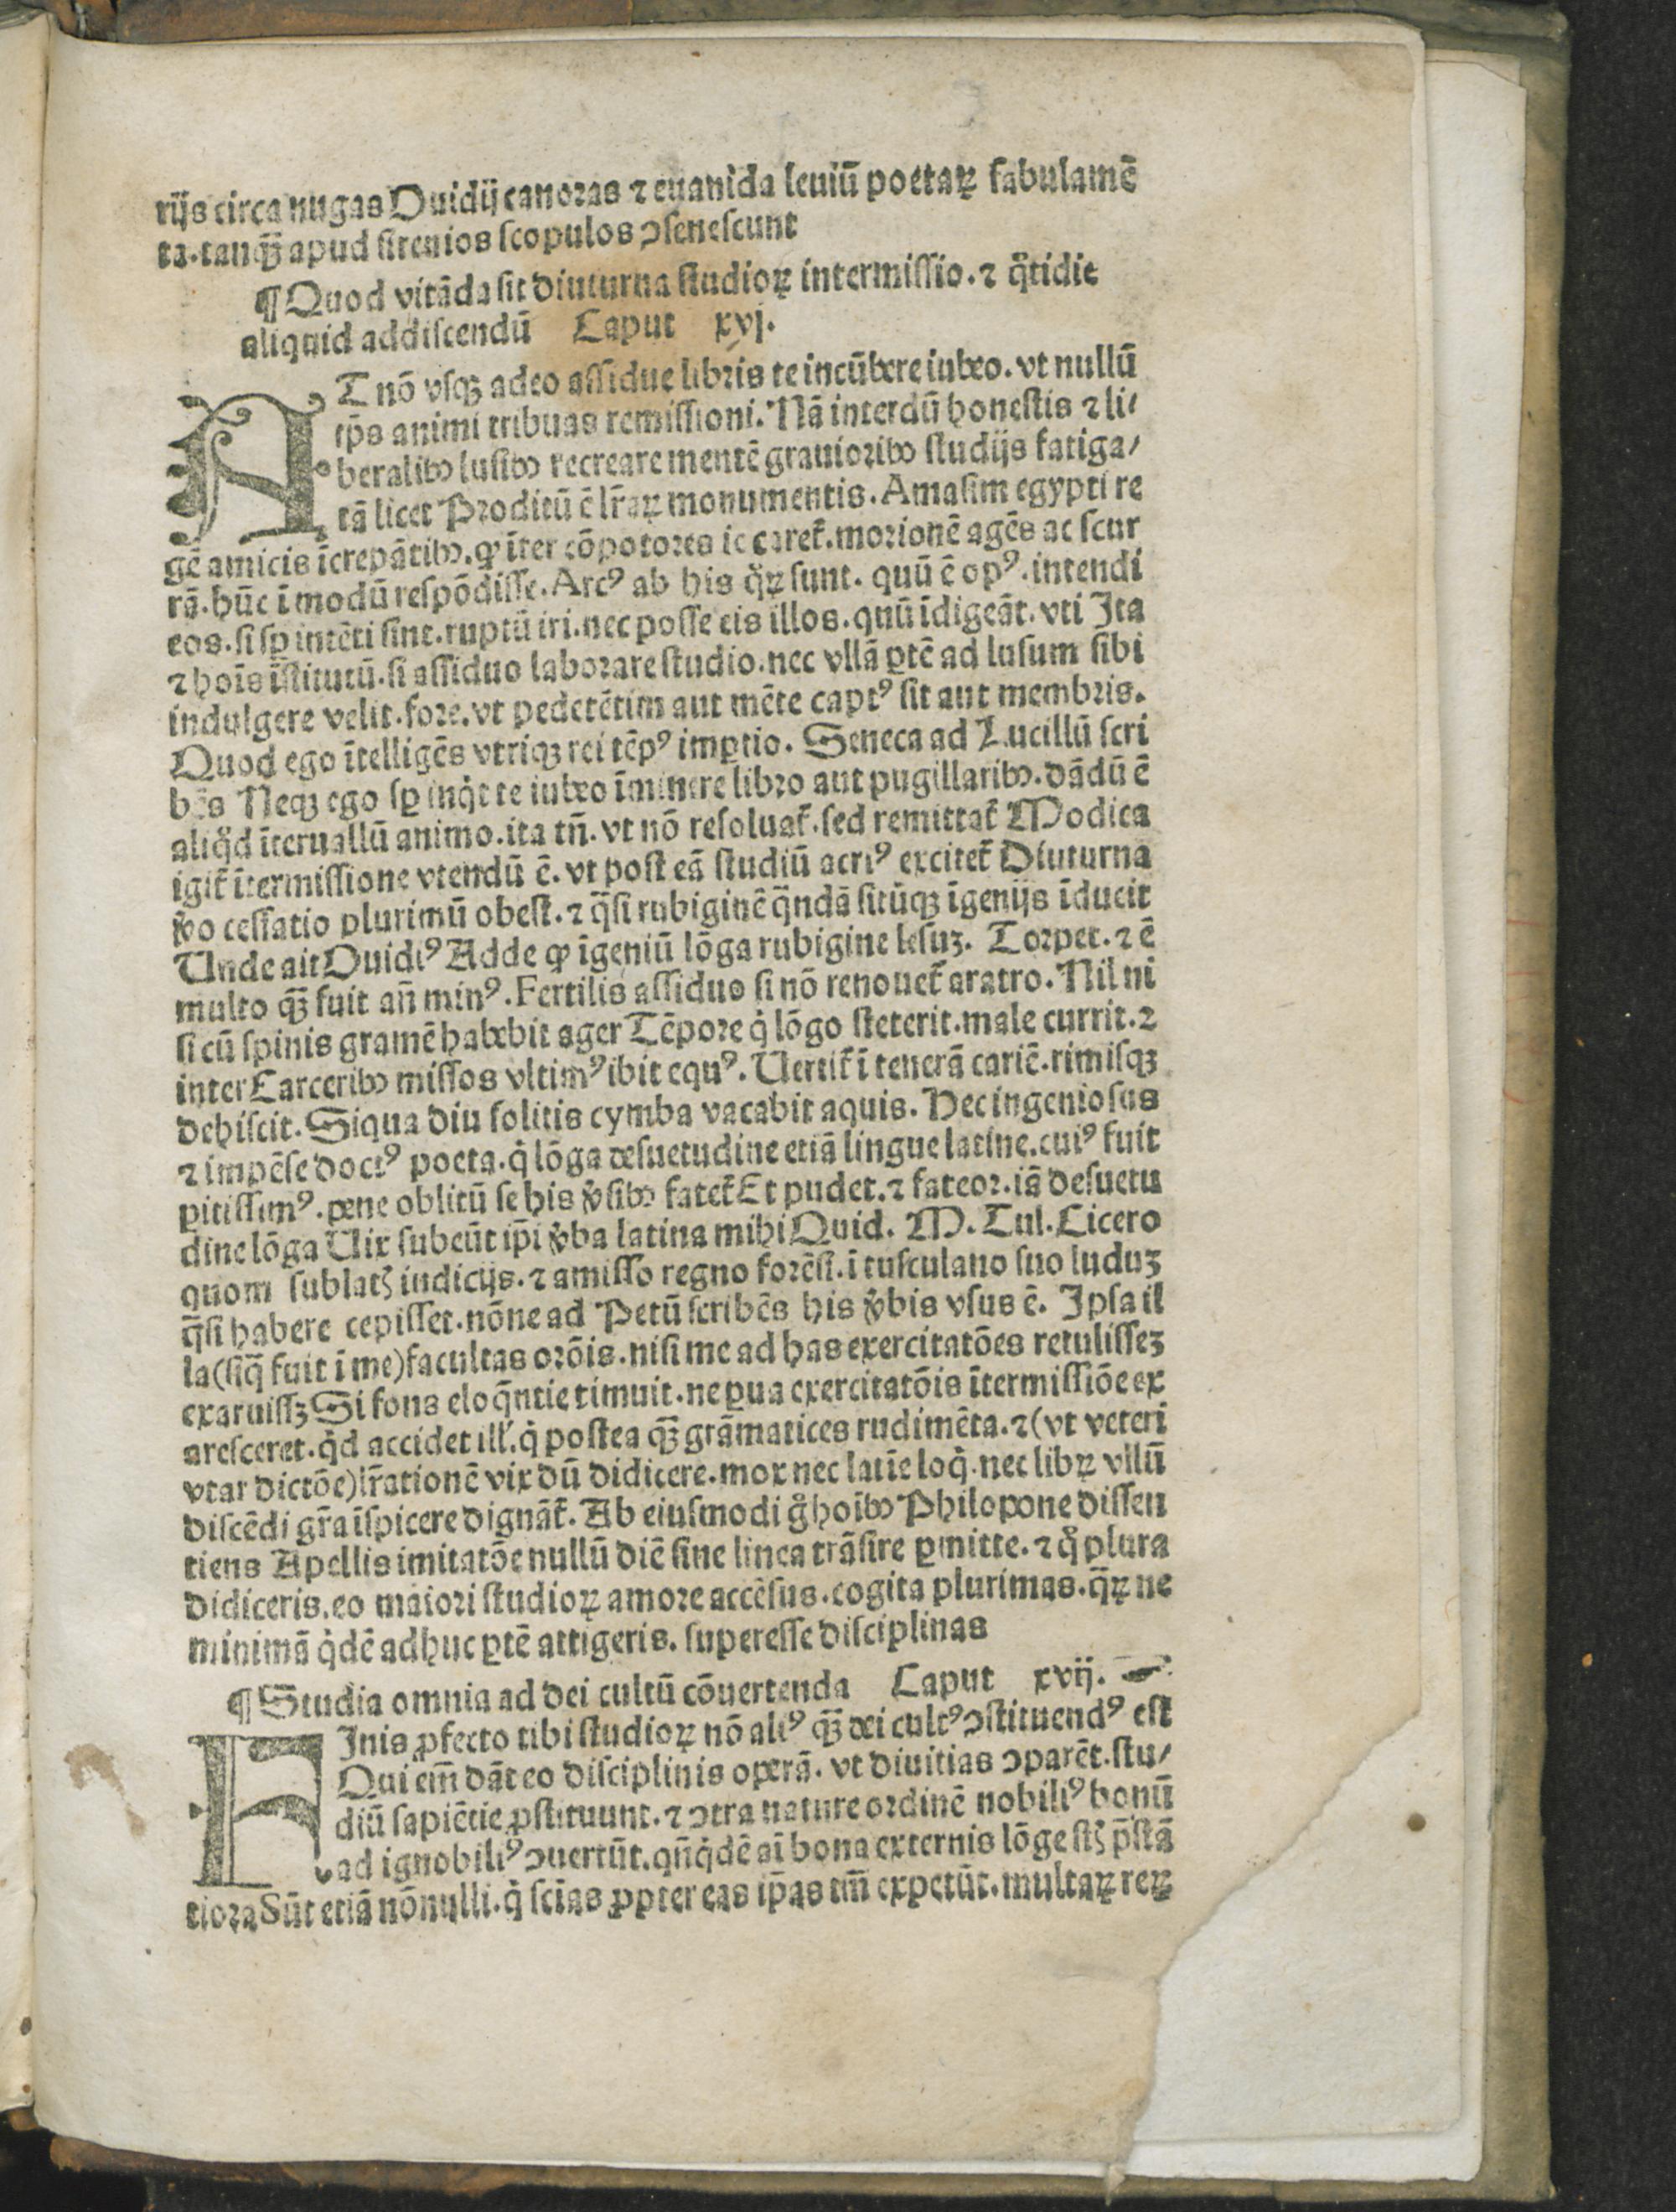 rijs circa nugas Ouidij canoras ⁊ euanida leuiū poetaꝝ fabulamē
ta.tanqꝫ̄ apud sirenios scopulos ꝯsenescunt
¶ Quod vitāda sit diuturna studioꝝ intermissio.⁊ q̈tidie
aliquid addiscendū Caput xvj.
AT nō vsqꝫ adeo assidue libris te incūbere iubeo.vt nullū
tp̄s animi tribuas remissioni. Nā interdū honestis ⁊ li⸗
beralibꝰ lusibꝰ recreare mentē grauioribꝰ studijs fatiga⸗
tā licet Proditū ē lr̄aꝝ monumentis. Amasim egypti re
gē amicis īcrepātibꝰ.ꝙ īter cōpotores iocaret̄.morionē agēs ac scur
rā.hūc ī modū respōdisse.Arcꝰ ab his q̊ꝝ sunt. quū ē opꝰ.intendi
eos.si sꝑ intēti sint.ruptū iri.nec posse eis illos.quū īdigeāt.vti Ita
⁊ hoīs īstitutū.si assiduo laborare studio.nec vllā ꝑtē ad lusum sibi
indulgere velit.fore.vt pedetētim aut mēte captꝰ sit aut membris.
Quod ego ītelligēs vtriqꝫ rei tēpꝰ imꝑtio. Seneca ad Lucillū scri
bēs Neqꝫ ego sꝑ inq̇t te iubeo īminere libro aut pugillaribꝰ.dādū ē
aliq̇d īteruallū animo.ita tn̄.vt nō resoluat̄.sed remittat̄ Modica
igit̄ ītermissione vtendū ē.vt post eā studiū acriꝰ excitet̄ Diuturna
ṽo cessatio plurimū obest.⁊ q̄si rubiginē q̄ndā sitūqꝫ īgenijs īducit
Unde ait Ouidiꝰ Adde ꝙ īgeniū lōga rubigine lesuꝫ. Torpet.⁊ ē
multo qꝫ̄ fuit an̄ minꝰ.Fertilis assiduo si nō renouet̄ aratro.Nil ni
si cū spinis gramē habebit ager Tēpore q̇ lōgo steterit.male currit.⁊
inter Carceribꝰ missos vltimꝰ ibit equꝰ. Uertit̄ ī tenerā cariē.rimisqꝫ
dehiscit.Siqua diu solitis cymba vacabit aquis. Nec ingeniosus
⁊ impēse doctꝰ poeta.q̇ lōga desuetudine etiā lingue latine.cuiꝰ fuit
ꝑitissimꝰ.pene oblitū se his ṽsibꝰ fatet̄ Et pudet.⁊ fateor.iā desuetu
dine lōga Uix subeūt ip̄i ṽba latina mihi Quid. M. Tul.Cicero
quom sublatꝭ iudicijs.⁊ amisso regno forēsi.ī tusculano suo luduꝫ
q̄si habere cepisset.nōne ad Petū scribēs his ṽbis vsus ē. Ipsa il
la(siq̄ fuit ī me)facultas orōis.nisi me ad has exercitatōes retulisseꝫ
exaruissꝫ Si fons eloq̄ntie timuit.ne ꝑua exercitatōis ītermissiōe ex
aresceret.q̇d accidet ill'.q̇ postea qꝫ̄ grāmatices rudimēta.⁊(vt veteri
vtar dictōe)lr̄ationē vix dū didicere.mox nec latīe loq̇.nec libꝝ vllū
discēdi gr̄a īspicere dignāt̄. Ab eiusmodi g̊ hoībꝰ Philopone dissen
tiens Apellis imitatōe nullū diē sine linea trāsire ꝑmitte.⁊ q̊ plura
didiceris.eo maiori studioꝝ amore accēsus.cogita plurimas.q̄ꝝ ne
minimā q̇dē adhuc ꝑtē attigeris. superesse disciplinas
¶ Studia omnia ad dei cultū cōuertenda Caput xvij.
FInis ꝓfecto tibi studioꝝ nō aliꝰ qꝫ̄ dei cultꝰ ꝯstituendꝰ est
Qui em̄ dāt eo disciplinis operā. vt diuitias ꝯparēt.stu⸗
diū sapiētie ꝓstituunt.⁊ ꝯtra nature ordinē nobiliꝰ bonū
ad ignobiliꝰ ꝯuertūt.qn̄q̇dē aī bona externis lōge sīt p̄stā
tiora Sūt etiā nōnulli.q̇ sciās ꝓpter eas ip̄as tm̄ expetūt.multaꝝ reꝝ